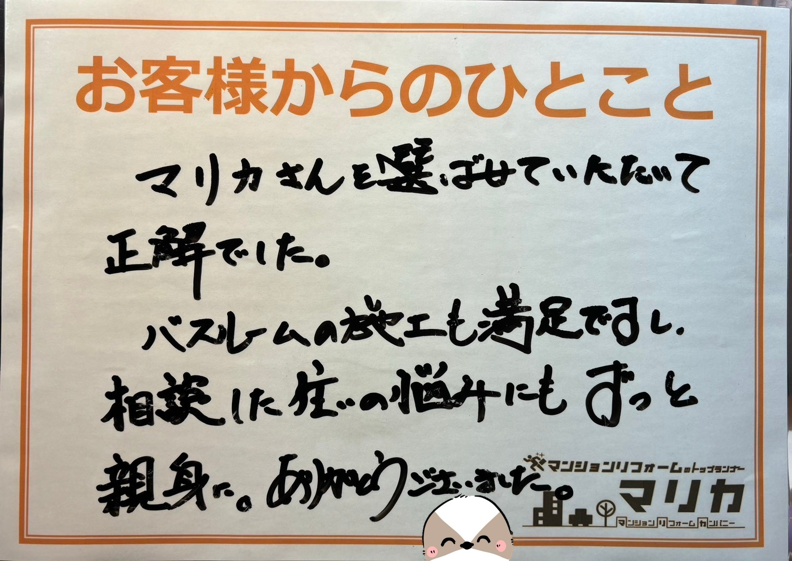 お客様からのひとこと
マリカさんを選ばせていただいて
正解でした。
バスルームの施工も満足ですし、
相談した住いの悩みにもずっと
親身に。ありがとうございました。
マンションリフォームのトップランナー
マリカ
マンションリフォームカンパニー